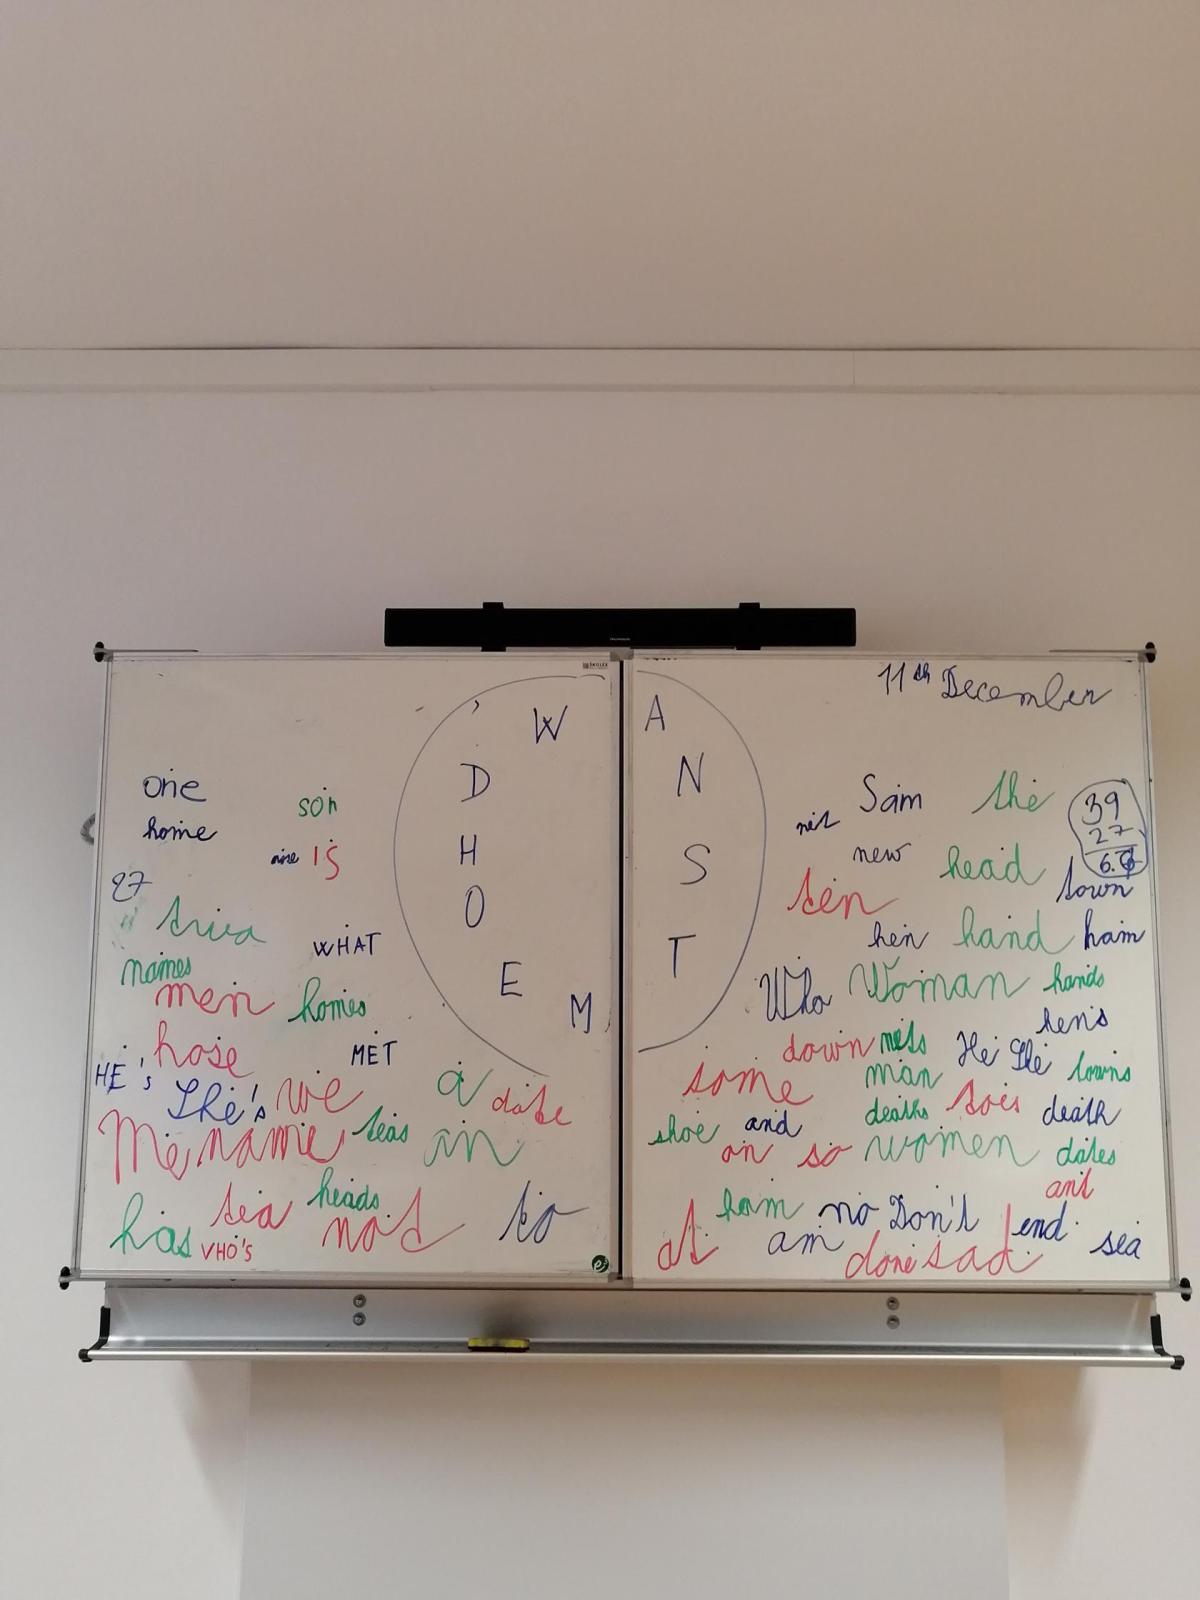 11th December
W
D
H
O
E
M
A
N
S
T
one
son
home
IS
27
WHAT
names
men
homes
hose
MET
HE's
She's
we
a
date
Me
name
seas
an
has
sea
heads
not
to
VHO'S
Sam
the
39
27
net
new
head
ten
town
hen
hand
ham
Who
Woman
hands
hens
down
nets
He
She
some
man
towns
shoe
and
deaths
toes
death
on
so
women
dates
ant
ham
no
Don't
end
at
am
done
sad
sea